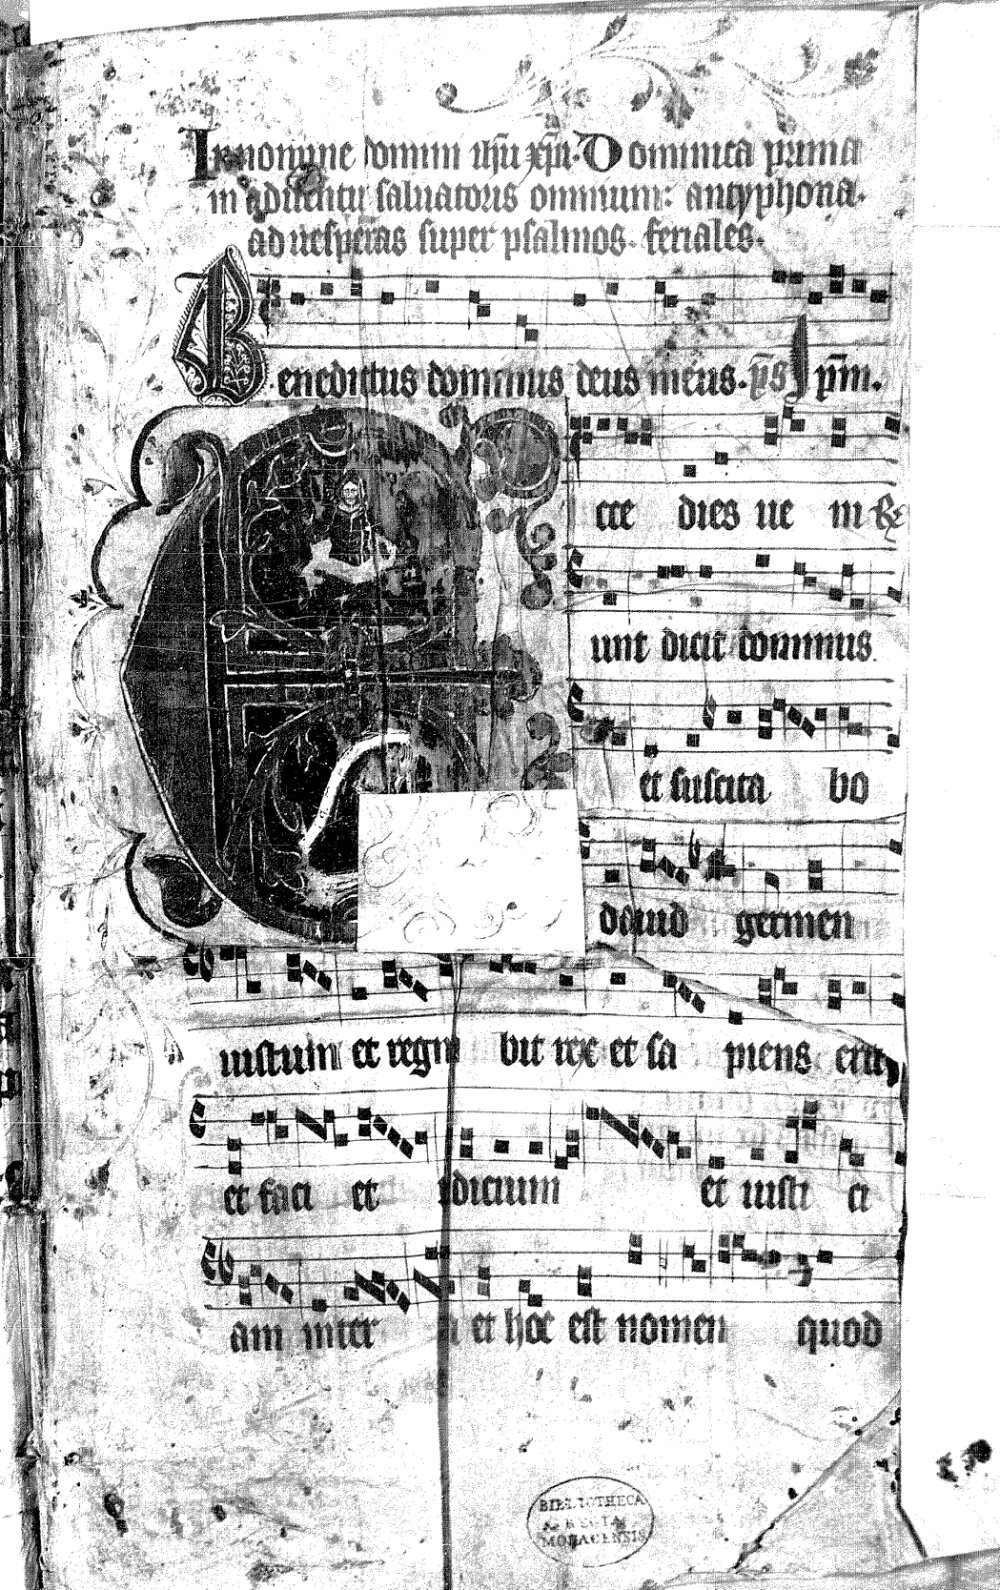 In nomine domini ih̄u xp̄i. Dominica prima
in aduentu saluatoris omnium: antyphona.
ad uesperas super psalmos. feriales.
Benedictus dominus deus meus. p̄s ip̄m.
Ecce dies ue ni
unt dicit dominus
et suscita bo
dauid germen
iustum et regna bit rex et sa piens erit
et faci et iudicium et iusti ci
am inter a et hoc est nomen quod
BIBLIOTHECA
REGIA
MONACENSIS